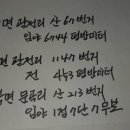 면 광전리 산 67번지
임야 6744 평방미터
면 광전리 1147번지
전 443 평방미터
면 문동리 산 213번지
임야 1정 7단 7무보